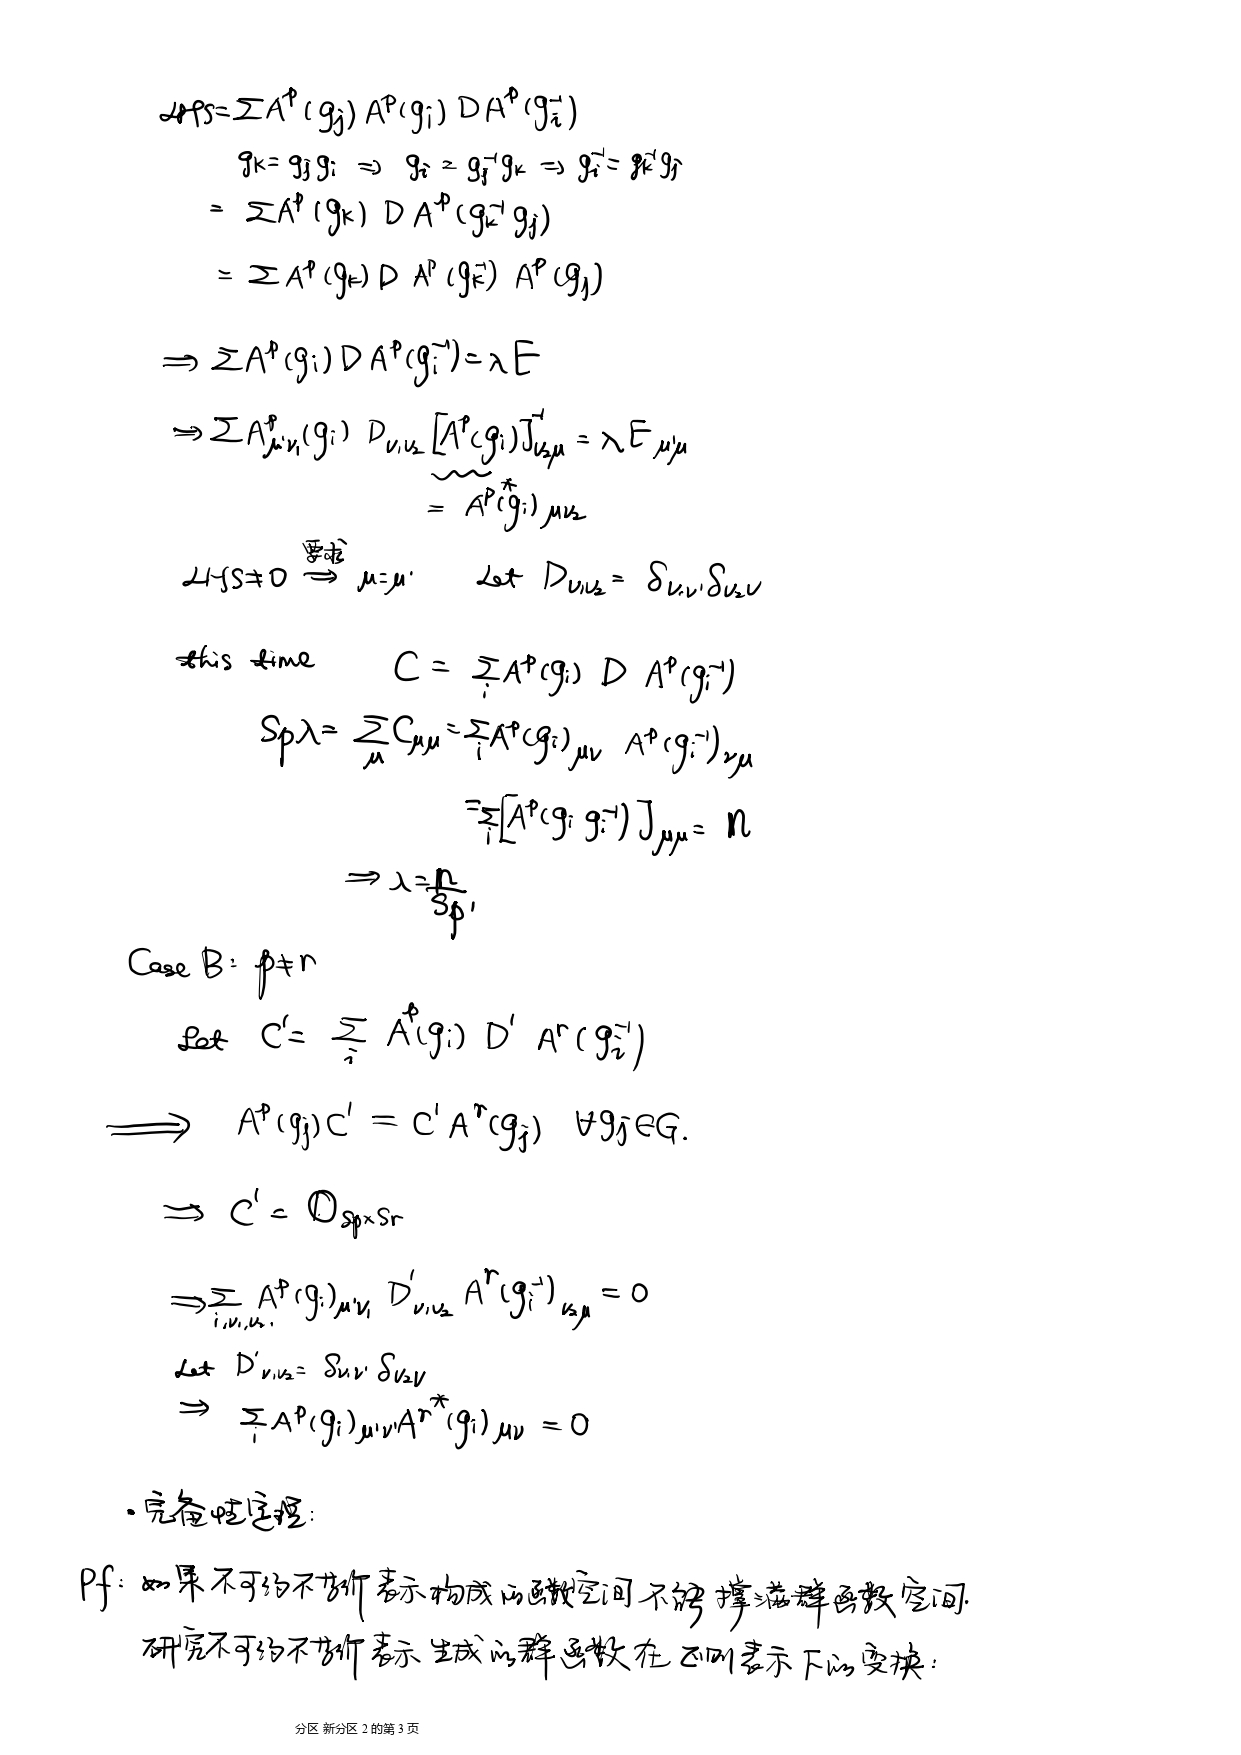 LHS = ΣA^p(g_j) A^p(g_i) D A^p(g_i^{-1})
g_k = g_j g_i ⇒ g_i = g_j^{-1} g_k ⇒ g_i^{-1} = g_k^{-1} g_j
= ΣA^p(g_k) D A^p(g_k^{-1} g_j)
= Σ A^p(g_k) D A^p(g_k^{-1}) A^p(g_j)
⇒ ΣA^p(g_i) D A^p(g_i^{-1}) = λE
⇒ ΣA^p_{μ'ν₁}(g_i) D_{ν₁ν₂} [A^p(g_i)]^{-1}_{ν₂μ} = λE_{μ'μ}
= A^p(g_i)^*_{μν₂}
LHS≠0 ⇒^{要求} μ=μ' Let D_{ν₁ν₂} = δ_{ν₁ν'} δ_{ν₂ν}
this time C = Σ_i A^p(g_i) D A^p(g_i^{-1})
S_p λ = Σ_μ C_{μμ} = Σ_i A^p(g_i)_{μν} A^p(g_i^{-1})_{νμ}
= Σ_i [A^p(g_i g_i^{-1})]_{μμ} = n
⇒ λ = n/S_p,
Case B: p≠r
Let C' = Σ_i A^p(g_i) D' A^r(g_i^{-1})
⟹ A^p(g_j) C' = C' A^r(g_j) ∀g_j∈G.
⇒ C' = 𝕆_{S_p×S_r}
⇒ Σ_{i,ν₁,ν₂,} A^p(g_i)_{μ'ν₁} D'_{ν₁ν₂} A^r(g_i^{-1})_{ν₂μ} = 0
Let D'_{ν₁ν₂} = δ_{ν₁ν'} δ_{ν₂ν}
⇒ Σ_i A^p(g_i)_{μ'ν'} A^{r*}(g_i)_{μν} = 0
·完备性定理:
Pf: 如果不可约不等价表示构成的函数空间不能撑满群函数空间.
研究不可约不等价表示生成的群函数在正则表示下的变换:
分区 新分区 2 的第 3 页